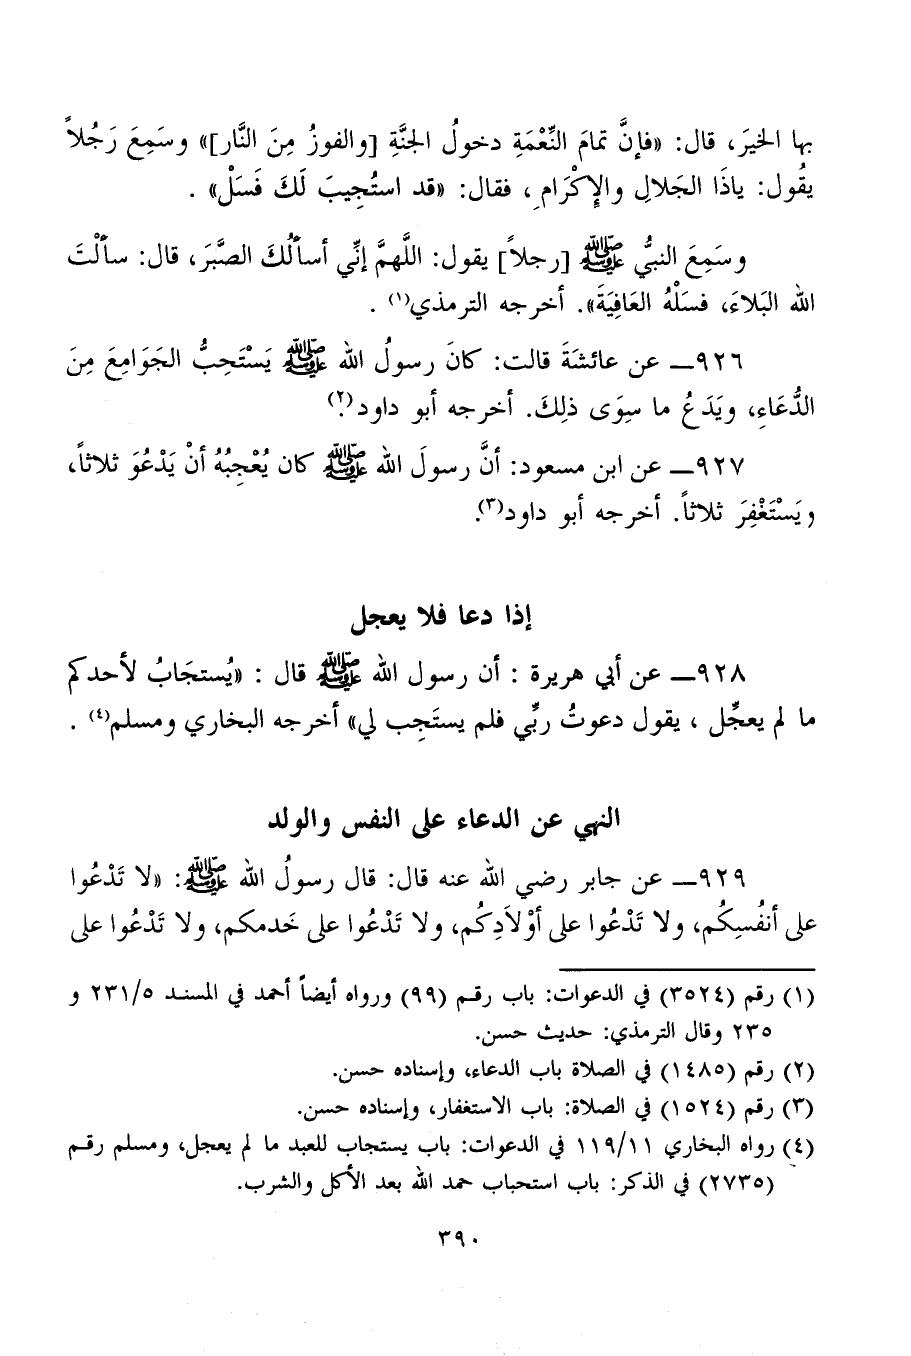 بها الخيرَ، قال: «فإنَّ تمامَ النِّعْمَةِ دخولُ الجنَّةِ [والفوزُ مِنَ النَّار]» وسَمِعَ رَجُلاً
يقُول: ياذَا الجَلالِ والإِكْرَام، فقال: «قد استُجِيبَ لَكَ فَسَلْ» .
وسَمِعَ النبيُّ ﷺ [رجلاً] يقول: اللَّهمَّ إنِّي أسأَلُكَ الصَّبَرَ، قال: سأَلْتَ
الله البَلاءَ، فسَلْهُ العَافِيَةَ». أخرجه الترمذي(١) .
٩٢٦ـ عن عائشَةَ قالت: كانَ رسولُ الله ﷺ يَسْتَحِبُّ الجَوَامِعَ مِنَ
الدُّعَاءِ، ويَدَعُ ما سِوَى ذلِكَ. أخرجه أبو داود(٢).
٩٢٧ـ عن ابن مسعود: أنَّ رسولَ الله ﷺ كان يُعْجِبُهُ أنْ يَدْعُوَ ثلاثاً،
ويَسْتَغْفِرَ ثلاثاً. أخرجه أبو داود(٣).
إذا دعا فلا يعجل
٩٢٨ـ عن أبي هريرة : أن رسول الله ﷺ قال : «يُستجَابُ لأحدكم
ما لم يعجِّل ، يقول دعوتُ ربِّي فلم يستَجِب لي» أخرجه البخاري ومسلم(٤) .
النهي عن الدعاء على النفس والولد
٩٢٩ـ عن جابر رضي الله عنه قال: قال رسولُ الله ﷺ: «لا تَدْعُوا
على أنفُسِكُم، ولا تَدْعُوا على أوْلاَدِكُم، ولا تَدْعُوا على خَدمكم، ولا تَدْعُوا على
(١) رقم (٣٥٢٤) في الدعوات: باب رقم (٩٩) ورواه أيضاً أحمد في المسند ٢٣١/٥ و
٢٣٥ وقال الترمذي: حديث حسن.
(٢) رقم (١٤٨٥) في الصلاة باب الدعاء، وإسناده حسن.
(٣) رقم (١٥٢٤) في الصلاة: باب الاستغفار، وإسناده حسن.
(٤) رواه البخاري ١١٩/١١ في الدعوات: باب يستجاب للعبد ما لم يعجل، ومسلم رقم
(٢٧٣٥) في الذكر: باب استحباب حمد الله بعد الأكل والشرب.
٣٩٠